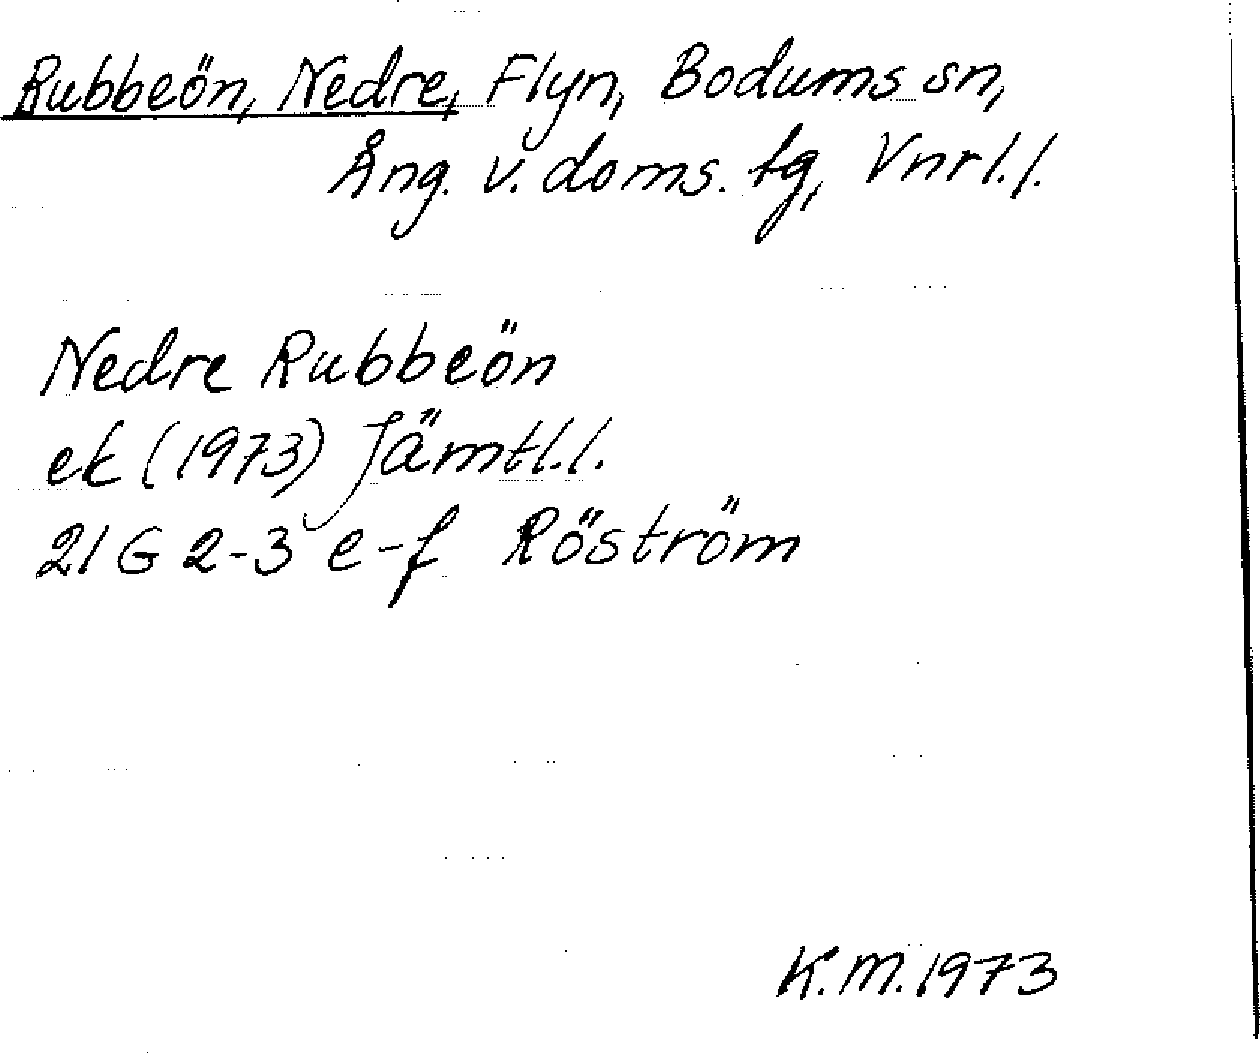 Rubbeön, Nedre, Flyn, Bodums sn,
Ång. v. doms. tg, Vnrl.l.
Nedre Rubbeön
ek (1973) Jämtl.l.
21 G 2-3 e-f Röström
K.M. 1973